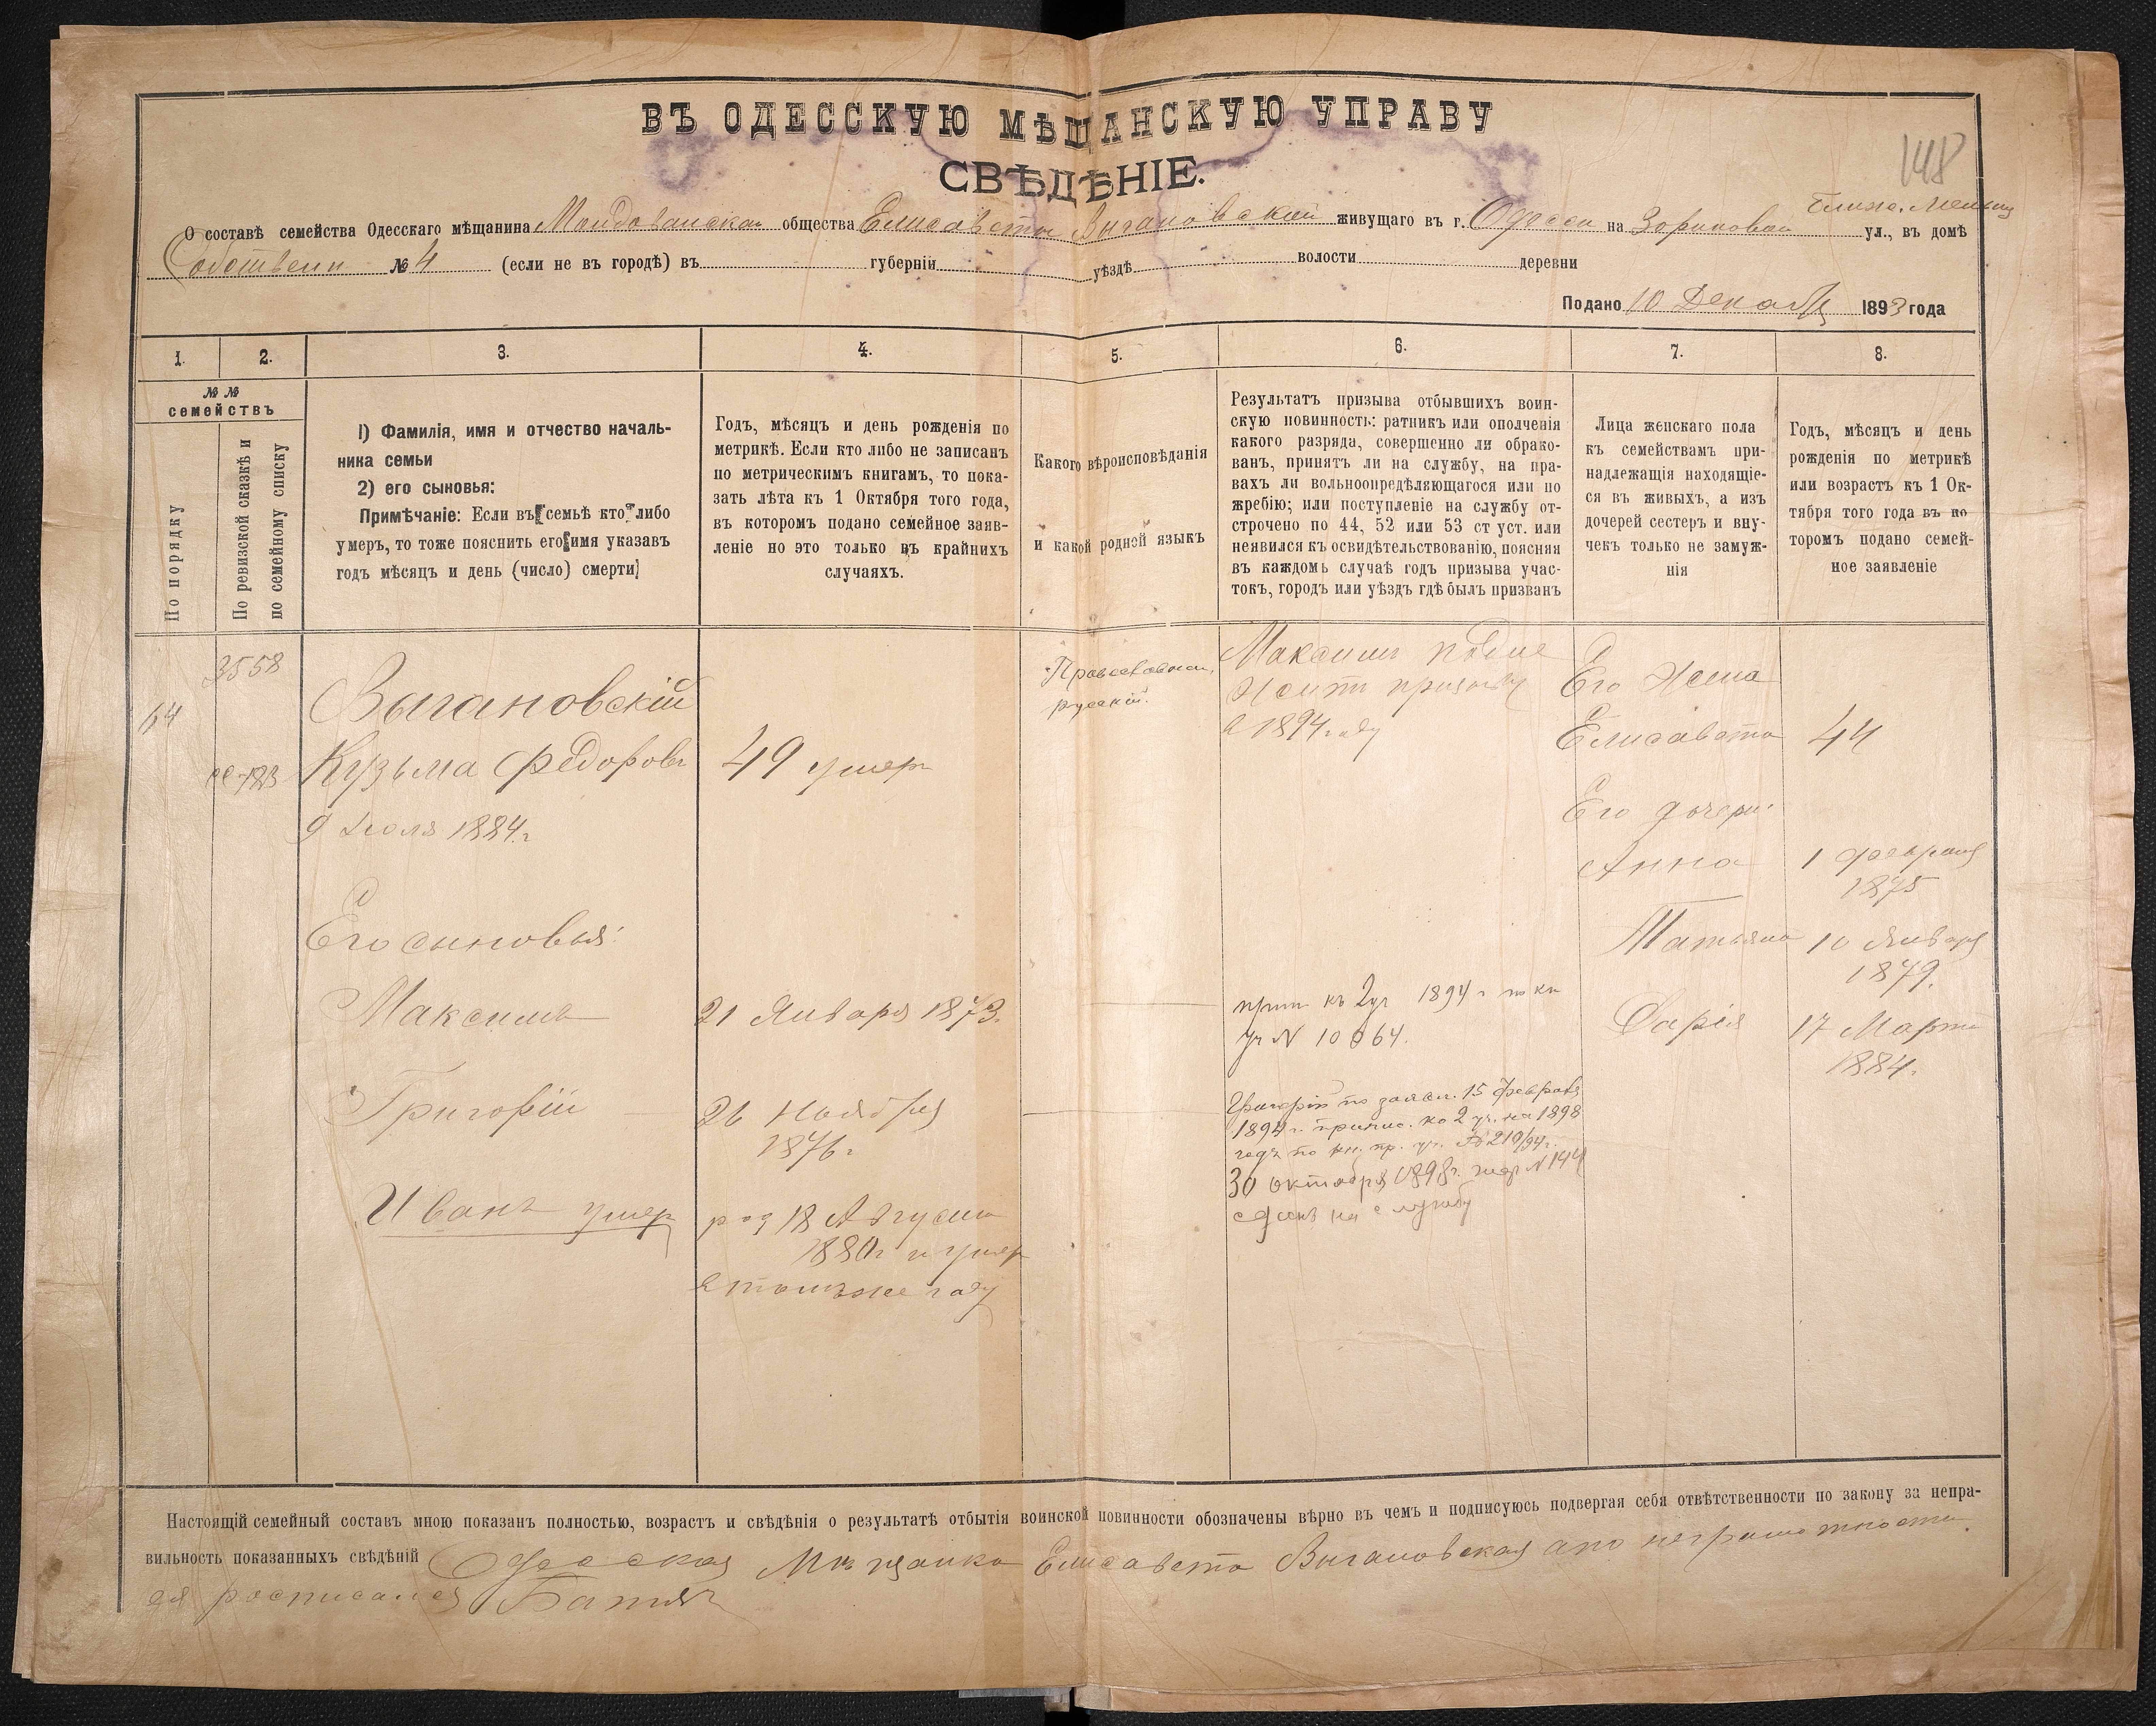 ВЪ ОДЕССКУЮ МѢЩАНСКУЮ УПРАВУ
СВѢДѢНІЕ.
148
О составѣ семейства Одесскаго мѣщанина Молдованскаго общества Елисавета Выгановской живущаго въ г. Одессы на Зориновой ул., въ домѣ
Собствен № 4 (если не въ городѣ) въ губерніи уѣздѣ волости деревни
Подано 10 Декабр 1893 года
1. 2. 3. 4. 5. 6. 7. 8.
№ №
семействъ
По порядку
По ревизской сказкѣ и
по семейному списку
1) Фамилія, имя и отчество началь-
ника семьи
2) его сыновья:
Примѣчаніе: Если въ семьѣ кто либо
умеръ, то тоже пояснить его имя указавъ
годъ мѣсяцъ и день (число) смерти)
Годъ, мѣсяцъ и день рожденія по
метрикѣ. Если кто либо не записанъ
по метрическимъ книгамъ, то пока-
зать лѣта къ 1 Октября того года,
въ которомъ подано семейное заяв-
леніе но это только въ крайнихъ
случаяхъ.
Какого вѣроисповѣданія
и какой родной языкъ
Результатъ призыва отбывшихъ воин-
скую повинность: ратникъ или ополченія
какого разряда, совершенно ли обрако-
ванъ, принятъ ли на службу, на пра-
вахъ ли вольноопредѣляющагося или по
жребію; или поступленіе на службу от-
строчено по 44, 52 или 53 ст уст. или
неявился къ освидѣтельствованію, поясняя
въ каждомъ случаѣ годъ призыва учас-
токъ, городъ или уѣздъ гдѣ былъ призванъ
Лица женскаго пола
къ семействамъ при-
надлежащія находящіе-
ся въ живыхъ, а изъ
дочерей сестеръ и вну-
чекъ только не замуж-
нія
Годъ, мѣсяцъ и день
рожденія по метрикѣ
или возрастъ къ 1 Ок-
тября того года въ ко
торомъ подано семей-
ное заявленіе
64
3558
Выгановскій
Кузьма Федоровъ
9 Іюля 1884 г.
49 умеръ
Православн.
русскій.
Максимъ подле
житъ призыву
в 1894 году
Его Жена
Елисавета 44
Его дочери:
Анна 1 февраля
1875
Татьяна 10 Января
1879.
Дарія 17 Марта
1884.
Его сыновья:
Максимъ 21 Января 1873.
прип къ 2 уч 1894 г по кн
уч N 10064.
Григорій 26 Ноября
1876 г
Григорій по заявл. 15 февраля
1894 г. припис. ко 2 уч. на 1898
годъ по кн. пр. уч. № 210/94 г.
30 октября 1898 г. жер N 144
сданъ на службу
Иванъ умер род 18 Августа
1880 г и умер
в томъ же году
Настоящій семейный составъ мною показанъ полностью, возрастъ и свѣдѣнія о результатѣ отбытія воинской повинности обозначены вѣрно въ чемъ и подписуюсь подвергая себя отвѣтственности по закону за непра-
вильность показанныхъ свѣдѣній Одесская Мѣщанка Елисавета Выгановская а по неграмотности
ея росписался